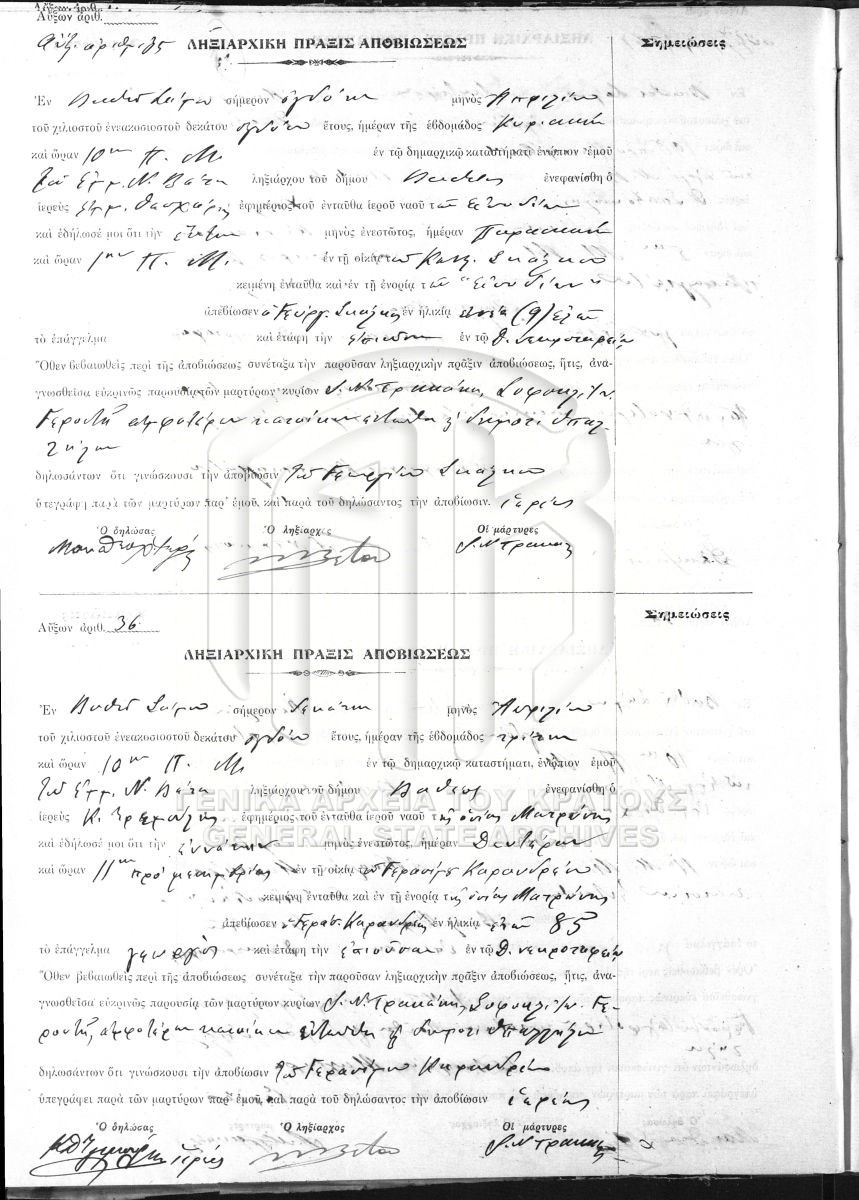 Αὔξων ἀριθ.
Αὔξ. ἀριθμ. 35 ΛΗΞΙΑΡΧΙΚΗ ΠΡΑΞΙΣ ΑΠΟΒΙΩΣΕΩΣ Σημειώσεις
Ἐν Βαθεῖ Σάμου σήμερον ὀγδόην μηνὸς Ἀπριλίου
τοῦ χιλιοστοῦ ἐνεακοσιοστοῦ δεκάτου ὀγδόου ἔτους, ἡμέραν τῆς ἑβδομάδος Κυριακὴν
καὶ ὥραν 10ην Π. Μ. ἐν τῷ δημαρχικῷ καταστήματι ἐνώπιον ἐμοῦ
τοῦ Ἐμμ. Ν. Βάτη ληξιάρχου τοῦ δήμου Βαθέος ἐνεφανίσθη ὁ
ἱερεὺς ἐφημέριος τοῦ ἐνταῦθα ἱεροῦ ναοῦ τῶν Εἰσοδίων
καὶ ἐδήλωσέ μοι ὅτι τὴν ἕκτην μηνὸς ἐνεστῶτος, ἡμέραν Παρασκευὴν
καὶ ὥραν 1ην Π. Μ. ἐν τῇ οἰκίᾳ τοῦ Κων.
κειμένῃ ἐνταῦθα καὶ ἐν τῇ ἐνορίᾳ τῶν "Εἰσοδίων"
ἀπεβίωσεν ὁ Γεώργ. ἐν ἡλικίᾳ (9) ἐτῶν
τὸ ἐπάγγελμα καὶ ἐτάφη τὴν ἐπιοῦσαν ἐν τῷ Δ. νεκροταφείῳ
Ὅθεν βεβαιωθεὶς περὶ τῆς ἀποβιώσεως συνέταξα τὴν παροῦσαν ληξιαρχικὴν πρᾶξιν ἀποβιώσεως, ἥτις, ἀνα-
γνωσθεῖσα εὐκρινῶς παρουσίᾳ τῶν μαρτύρων κυρίων Ι. Ν. Τρακάκη, Σοφοκλ. Ιω.
Γεροντῆ ἀμφοτέρων κατοίκων ἐνταῦθα ᾗ δημοτ. ὑπαλ-
λήλων
δηλωσάντων ὅτι γινώσκουσι τὴν ἀποβίωσιν τοῦ Γεωργίου
ὑπεγράφη παρὰ τῶν μαρτύρων παρ' ἐμοῦ, καὶ παρὰ τοῦ δηλώσαντος τὴν ἀποβίωσιν. ἱερέως
Ὁ δηλώσας Ὁ ληξίαρχος Οἱ μάρτυρες
Ι. Ν Τρακάκης
Αὔξων ἀριθ. 36 Σημειώσεις
ΛΗΞΙΑΡΧΙΚΗ ΠΡΑΞΙΣ ΑΠΟΒΙΩΣΕΩΣ
Ἐν Βαθεῖ Σάμου σήμερον δεκάτην μηνὸς Ἀπριλίου
τοῦ χιλιοστοῦ ἐνεακοσιοστοῦ δεκάτου ὀγδόου ἔτους, ἡμέραν τῆς ἑβδομάδος τρίτην
καὶ ὥραν 10ην Π. Μ. ἐν τῷ δημαρχικῷ καταστήματι, ἐνώπιον ἐμοῦ
τοῦ Ἐμμ. Ν. Βάτη ληξιάρχου τοῦ δήμου Βαθέος ἐνεφανίσθη ὁ
ἱερεὺς Κ. ἐφημέριος τοῦ ἐνταῦθα ἱεροῦ ναοῦ τῆς ἁγίας Ματρώνης
καὶ ἐδήλωσέ μοι ὅτι τὴν ἐννάτην μηνὸς ἐνεστῶτος, ἡμέραν Δευτέραν
καὶ ὥραν 11ην πρὸ μεσημβρίας ἐν τῇ οἰκίᾳ τοῦ Γερασίμου Καρανδρέου
κειμένῃ ἐνταῦθα καὶ ἐν τῇ ἐνορίᾳ τῆς ἁγίας Ματρώνης
ἀπεβίωσεν ὁ Γεράσ. Καρανδρέας ἐν ἡλικίᾳ ἐτῶν 85
τὸ ἐπάγγελμα γεωργὸς καὶ ἐτάφη τὴν ἐπιοῦσαν ἐν τῷ Δ. νεκροταφείῳ
Ὅθεν βεβαιωθεὶς περὶ τῆς ἀποβιώσεως συνέταξα τὴν παροῦσαν ληξιαρχικὴν πρᾶξιν ἀποβιώσεως, ἥτις, ἀνα-
γνωσθεῖσα εὐκρινῶς παρουσίᾳ τῶν μαρτύρων κυρίων Ι. Ν. Τρακάκη, Σοφοκλ. Ιω. Γε-
ροντῆ, ἀμφοτέρων κατοίκων ἐνταῦθα ᾗ δημοτ. ὑπαλλήλων
δηλωσάντων ὅτι γινώσκουσι τὴν ἀποβίωσιν τοῦ Γερασίμου Καρανδρέου
ὑπεγράφει παρὰ τῶν μαρτύρων παρ' ἐμοῦ, καὶ παρὰ τοῦ δηλώσαντος τὴν ἀποβίωσιν ἱερέως
Ὁ δηλώσας Ὁ ληξίαρχος Οἱ μάρτυρες
ἱερεύς Ι. Ν Τρακάκης
ΓΕΝΙΚΑ ΑΡΧΕΙΑ ΤΟΥ ΚΡΑΤΟΥΣ
GENERAL STATE ARCHIVES